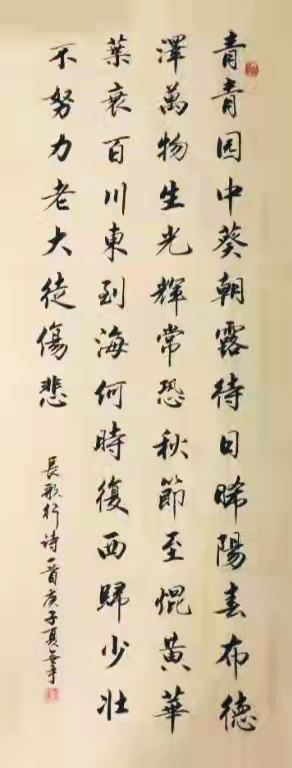 青青园中葵朝露待日晞陽春布德
澤萬物生光輝常恐秋節至焜黃華
葉衰百川東到海何時復西歸少壯
不努力老大徒傷悲
長歌行诗一首庚子夏